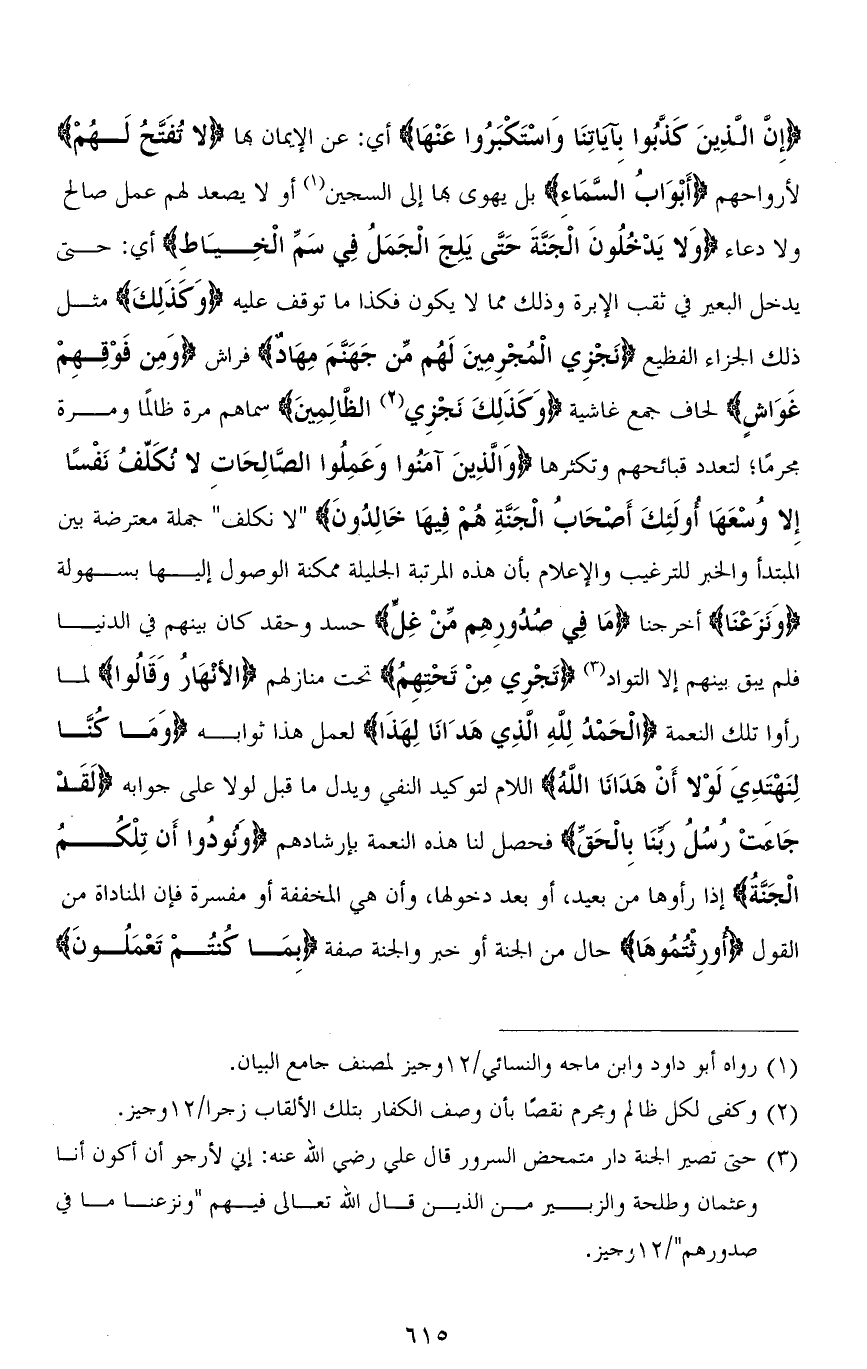 ﴿إِنَّ الَّذِينَ كَذَّبُوا بِآيَاتِنَا وَاسْتَكْبَرُوا عَنْهَا﴾ أي: عن الإيمان بها ﴿لا تُفَتَّحُ لَهُمْ﴾
لأرواحهم ﴿أَبْوَابُ السَّمَاءِ﴾ بل يهوى بها إلى السجين(١) أو لا يصعد لهم عمل صالح
ولا دعاء ﴿وَلا يَدْخُلُونَ الْجَنَّةَ حَتَّى يَلِجَ الْجَمَلُ فِي سَمِّ الْخِيَاطِ﴾ أي: حتى
يدخل البعير في ثقب الإبرة وذلك مما لا يكون فكذا ما توقف عليه ﴿وَكَذَلِكَ﴾ مثل
ذلك الجزاء الفظيع ﴿نَجْزِي الْمُجْرِمِينَ لَهُم مِّن جَهَنَّمَ مِهَادٌ﴾ فراش ﴿وَمِن فَوْقِهِمْ
غَوَاشٍ﴾ لحاف جمع غاشية ﴿وَكَذَلِكَ نَجْزِي(٢) الظَّالِمِينَ﴾ سماهم مرة ظالمًا ومرة
مجرمًا؛ لتعدد قبائحهم وتكثرها ﴿وَالَّذِينَ آمَنُوا وَعَمِلُوا الصَّالِحَاتِ لا نُكَلِّفُ نَفْسًا
إِلا وُسْعَهَا أُولَئِكَ أَصْحَابُ الْجَنَّةِ هُمْ فِيهَا خَالِدُونَ﴾ "لا نكلف" جملة معترضة بين
المبتدأ والخبر للترغيب والإعلام بأن هذه المرتبة الجليلة ممكنة الوصول إليها بسهولة
﴿وَنَزَعْنَا﴾ أخرجنا ﴿مَا فِي صُدُورِهِم مِّنْ غِلٍّ﴾ حسد وحقد كان بينهم في الدنيا
فلم يبق بينهم إلا التواد(٣) ﴿تَجْرِي مِنْ تَحْتِهِمُ﴾ تحت منازلهم ﴿الأَنْهَارُ وَقَالُوا﴾ لما
رأوا تلك النعمة ﴿الْحَمْدُ لِلَّهِ الَّذِي هَدَانَا لِهَذَا﴾ لعمل هذا ثوابه ﴿وَمَا كُنَّا
لِنَهْتَدِيَ لَوْلا أَنْ هَدَانَا اللَّهُ﴾ اللام لتوكيد النفي ويدل ما قبل لولا على جوابه ﴿لَقَدْ
جَاءَتْ رُسُلُ رَبِّنَا بِالْحَقِّ﴾ فحصل لنا هذه النعمة بإرشادهم ﴿وَنُودُوا أَن تِلْكُمُ
الْجَنَّةُ﴾ إذا رأوها من بعيد، أو بعد دخولها، وأن هي المخففة أو مفسرة فإن المناداة من
القول ﴿أُورِثْتُمُوهَا﴾ حال من الجنة أو خبر والجنة صفة ﴿بِمَا كُنتُمْ تَعْمَلُونَ﴾
(١) رواه أبو داود وابن ماجه والنسائي/١٢وجيز لمصنف جامع البيان.
(٢) وكفى لكل ظالم ومجرم نقصًا بأن وصف الكفار بتلك الألقاب زجرا/١٢وجيز.
(٣) حتى تصير الجنة دار متمحض السرور قال علي رضي الله عنه: إني لأرجو أن أكون أنا
وعثمان وطلحة والزبير من الذين قال الله تعالى فيهم "ونزعنا ما في
صدورهم"/١٢وجيز.
٦١٥